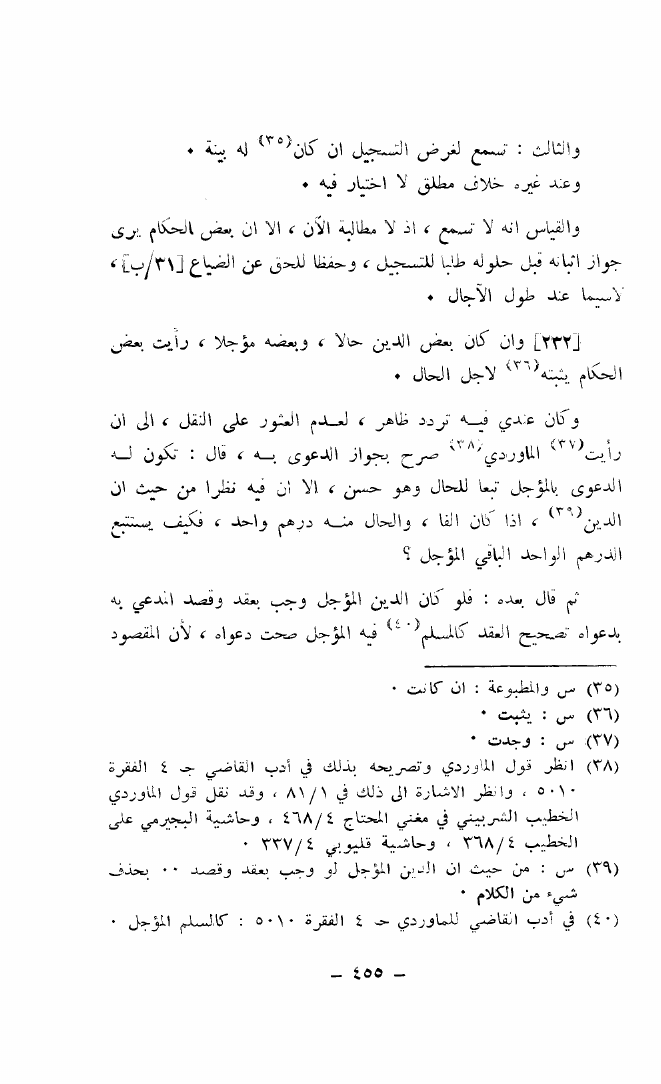 والثالث : تسمع لغرض التسجيل ان كان(٣٥) له بينة ٠
وعند غيره خلاف مطلق لا اختيار فيه ٠
والقياس انه لا تسمع ، اذ لا مطالبة الآن ، الا ان بعض الحكام يرى
جواز اثباته قبل حلوله طلبا للتسجيل ، وحفظا للحق عن الضياع [٣١/ب] ،
لاسيما عند طول الآجال ٠
[٢٣٢] وان كان بعض الدين حالا ، وبعضه مؤجلا ، رأيت بعض
الحكام يثبته(٣٦) لاجل الحال ٠
وكان عندي فيـه تردد ظاهر ، لعـدم العثور على النقل ، الى ان
رأيت(٣٧) الماوردي(٣٨) صرح بجواز الدعوى بـه ، قال : تكون لـه
الدعوى بالمؤجل تبعا للحال وهو حسن ، الا ان فيه نظرا من حيث ان
الدين(٣٩) ، اذا كان الفا ، والحال منـه درهم واحد ، فكيف يستتبع
الدرهم الواحد الباقي المؤجل ؟
ثم قال بعده : فلو كان الدين المؤجل وجب بعقد وقصد المدعي به
بدعواه تصحيح العقد كالسلم(٤٠) فيه المؤجل صحت دعواه ، لأن المقصود
(٣٥) س والمطبوعة : ان كانت ٠
(٣٦) س : يثبت ٠
(٣٧) س : وجدت ٠
(٣٨) انظر قول الماوردي وتصريحه بذلك في أدب القاضي جـ ٤ الفقرة
٥٠١٠ ، وانظر الاشارة الى ذلك في ٨١/١ ، وقد نقل قول الماوردي
الخطيب الشربيني في مغني المحتاج ٤٦٨/٤ ، وحاشية البجيرمي على
الخطيب ٣٦٨/٤ ، وحاشية قليوبي ٣٣٧/٤ ٠
(٣٩) س : من حيث ان الدين المؤجل لو وجب بعقد وقصد ٠٠ بحذف
شيء من الكلام ٠
(٤٠) في أدب القاضي للماوردي جـ ٤ الفقرة ٥٠١٠ : كالسلم المؤجل ٠
– ٤٥٥ –